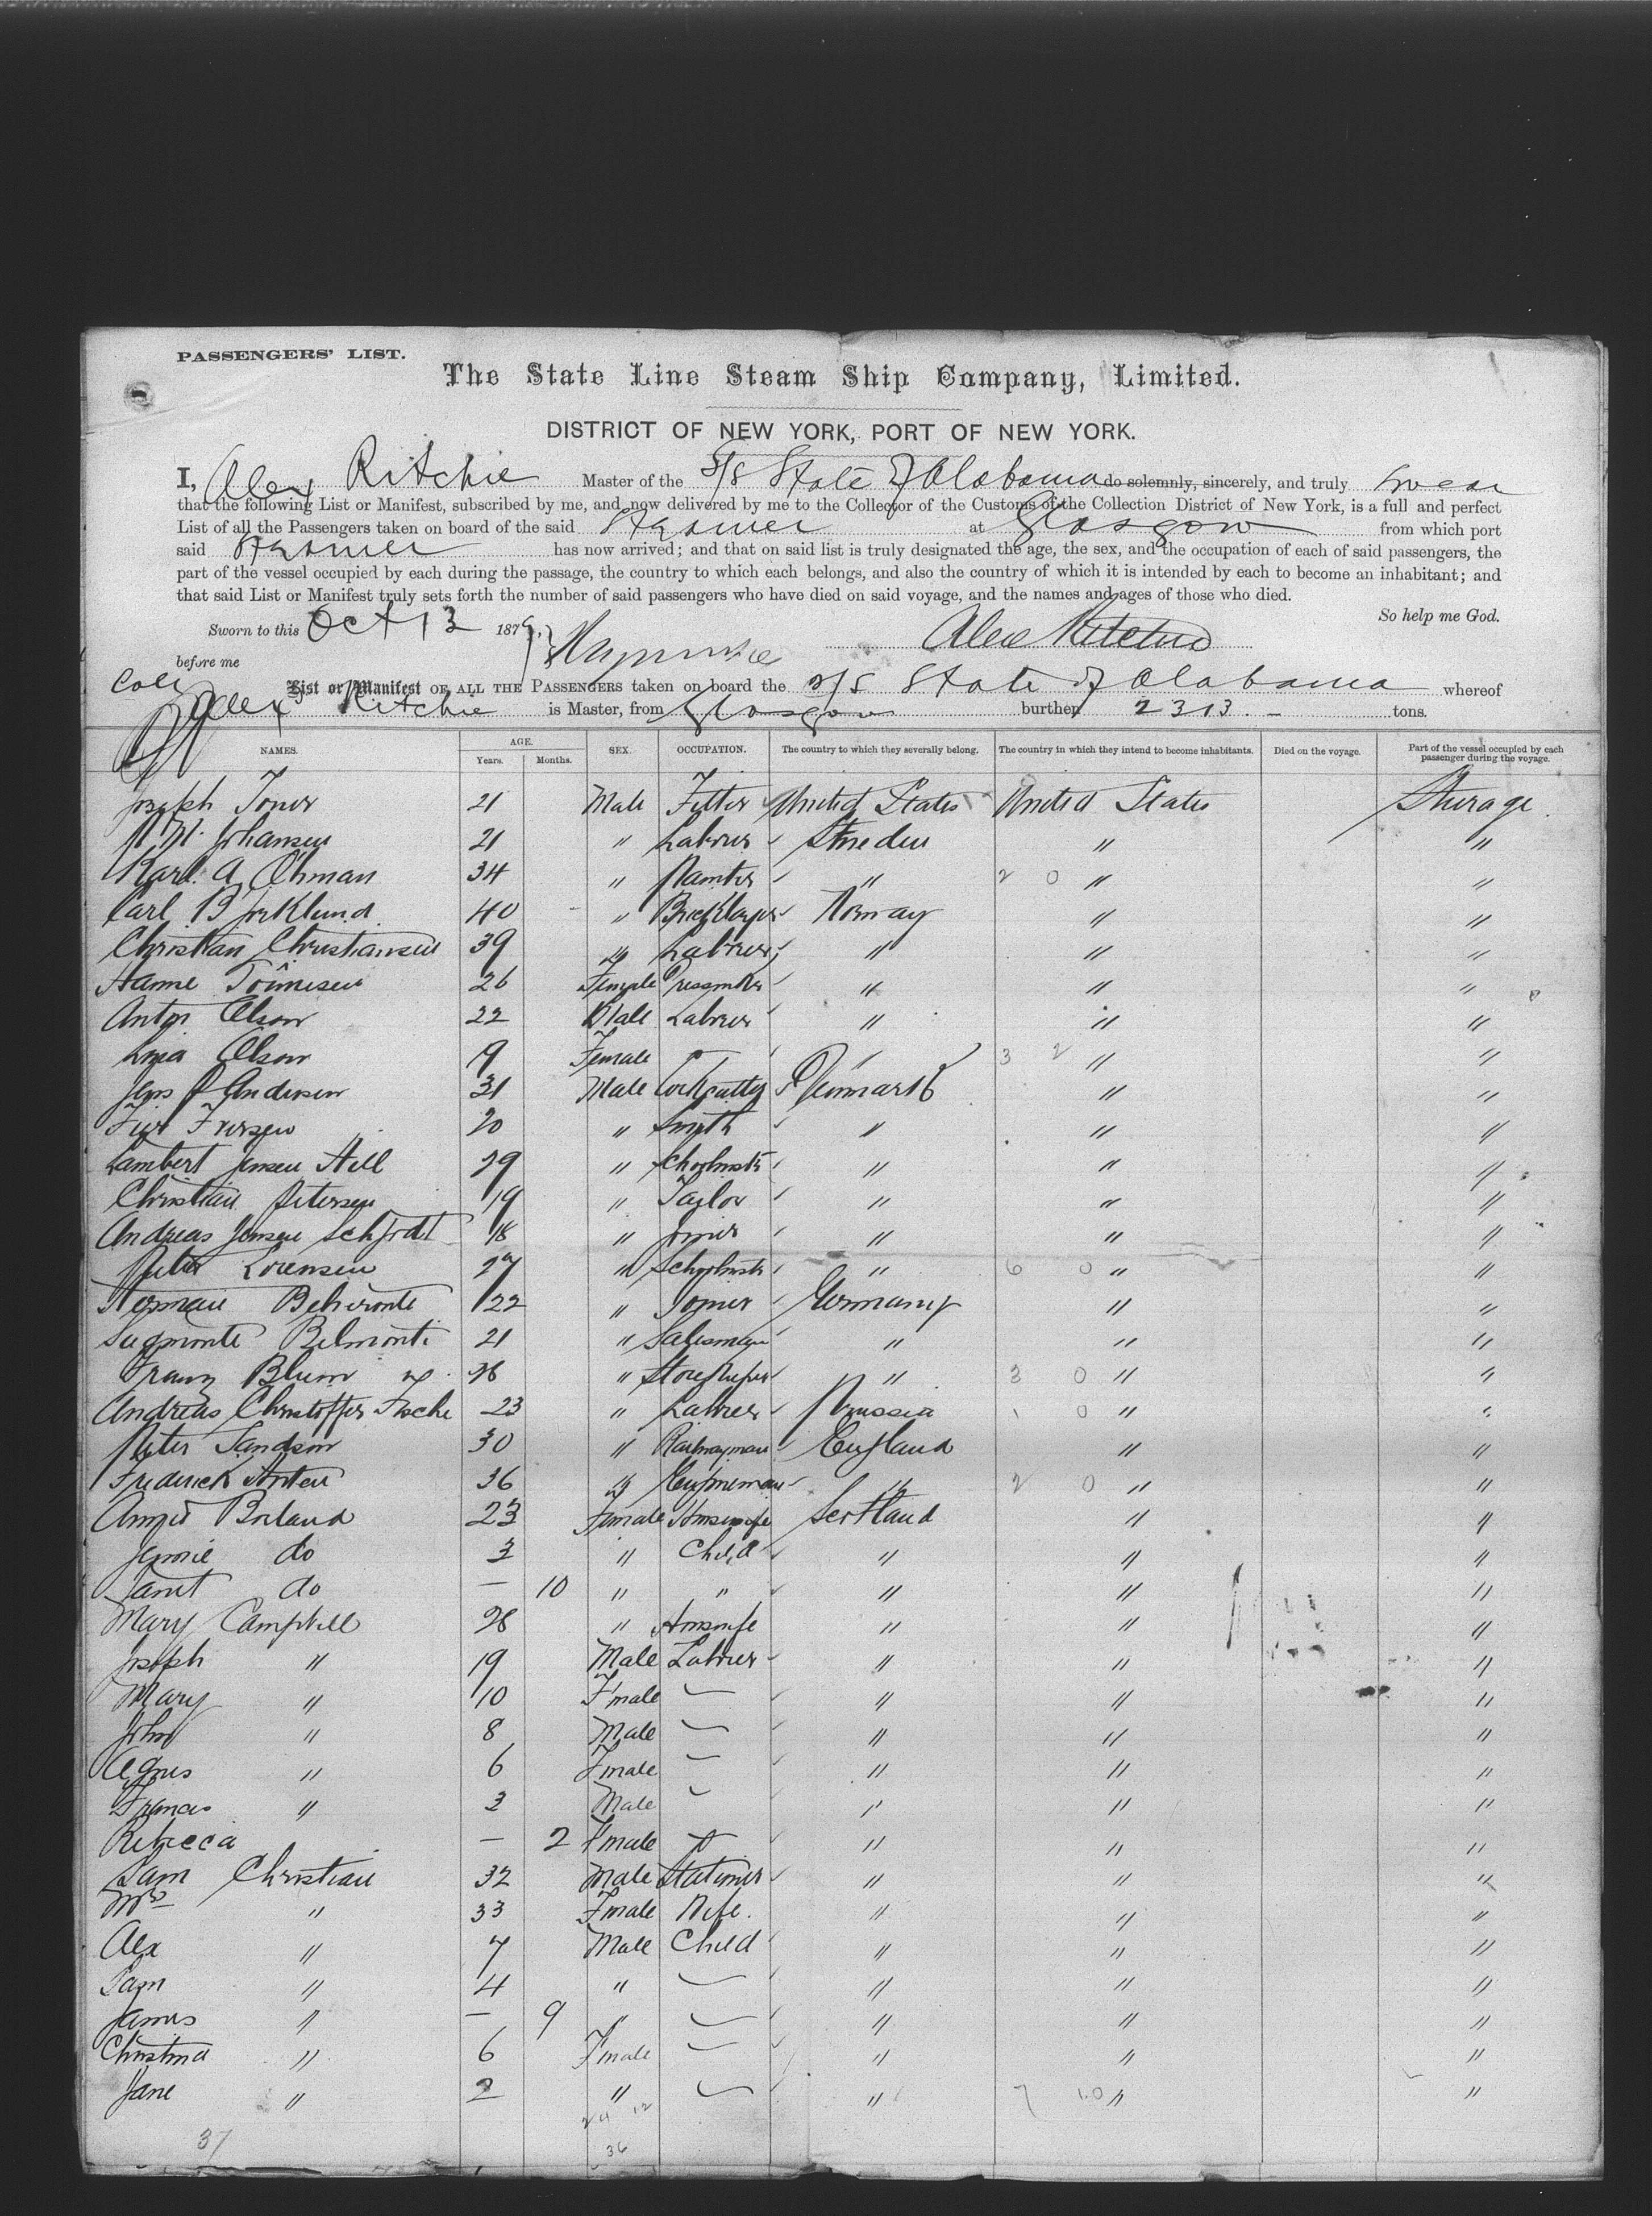 PASSENGERS' LIST.
The State Line Steam Ship Company, Limited.
DISTRICT OF NEW YORK, PORT OF NEW YORK.
I, Alex Ritchie Master of the S/S State of Alabama do solemnly, sincerely, and truly swear
that the following List or Manifest, subscribed by me, and now delivered by me to the Collector of the Customs of the Collection District of New York, is a full and perfect
List of all the Passengers taken on board of the said Steamer at Glasgow from which port
said Steamer has now arrived; and that on said list is truly designated the age, the sex, and the occupation of each of said passengers, the
part of the vessel occupied by each during the passage, the country to which each belongs, and also the country of which it is intended by each to become an inhabitant; and
that said List or Manifest truly sets forth the number of said passengers who have died on said voyage, and the names and ages of those who died.
So help me God.
Sworn to this Oct 13 1879. Alex Ritchie
before me
List or Manifest OF ALL THE PASSENGERS taken on board the S/S State of Alabama whereof
Alex Ritchie is Master, from Glasgow burthen 2313. - tons.
NAMES. AGE. Years. Months. SEX. OCCUPATION. The country to which they severally belong. The country in which they intend to become inhabitants. Died on the voyage. Part of the vessel occupied by each passenger during the voyage.
Joseph Toner 21 Male Fitter United States United States Sturage
Johansen 21 " Labrer Sweden " "
Karl A Ohman 34 " Painter " 2 0 " "
Carl Bjorklund 40 " Bricklayer Norway " "
Christian Christiansen 39 " Labrer " " "
Hanne Tönnesen 26 Female Dressmkr " " "
Anton Olson 22 Male Labrer " " "
Lina Olson 9 Female " 3 2 " "
Jens P Andersen 31 Male Corkcutter Denmark " "
20 " Smith " " "
Lambert Jensen Hell 29 " Schoolmstr " " "
Christian Petersen 19 " Taylor " " "
Andreas Jensen Schjodt 18 " Joiner " " "
Peter Lorensen 27 " Schoolmstr " 6 0 " "
Herman Belmonte 22 " Joiner Germany " "
Belmonti 21 " Salesman " " "
Franz Blum 28 " Storekeeper " 3 0 " "
Andreas Christoffer Fische 23 " Labrer Prussia 1 0 " "
Peter Sandson 30 " Railwayman England " "
Frederick 36 " Engineman " 2 0 " "
Borland 23 Female Housewife Scotland " "
Jennie do 3 " Child " " "
Janet do — 10 " " " " "
Mary Campbell 28 " Housewife " " "
Joseph " 19 Male Labrer " " "
Mary " 10 Fmale — " " "
John " 8 Male — " " "
Agnes " 6 Fmale — " " "
Francis " 3 Male — " " "
Rebecca — 2 Fmale " " "
Sam Christian 32 Male Stationer " " "
Mrs " 33 Fmale Wife. " " "
Alex " 7 Male Child " " "
Sam " 4 " — " " "
James " — 9 " — " " "
Christina " 6 Fmale — " " "
Jane " 2 " — " 7 10 " "
24 12
37 36